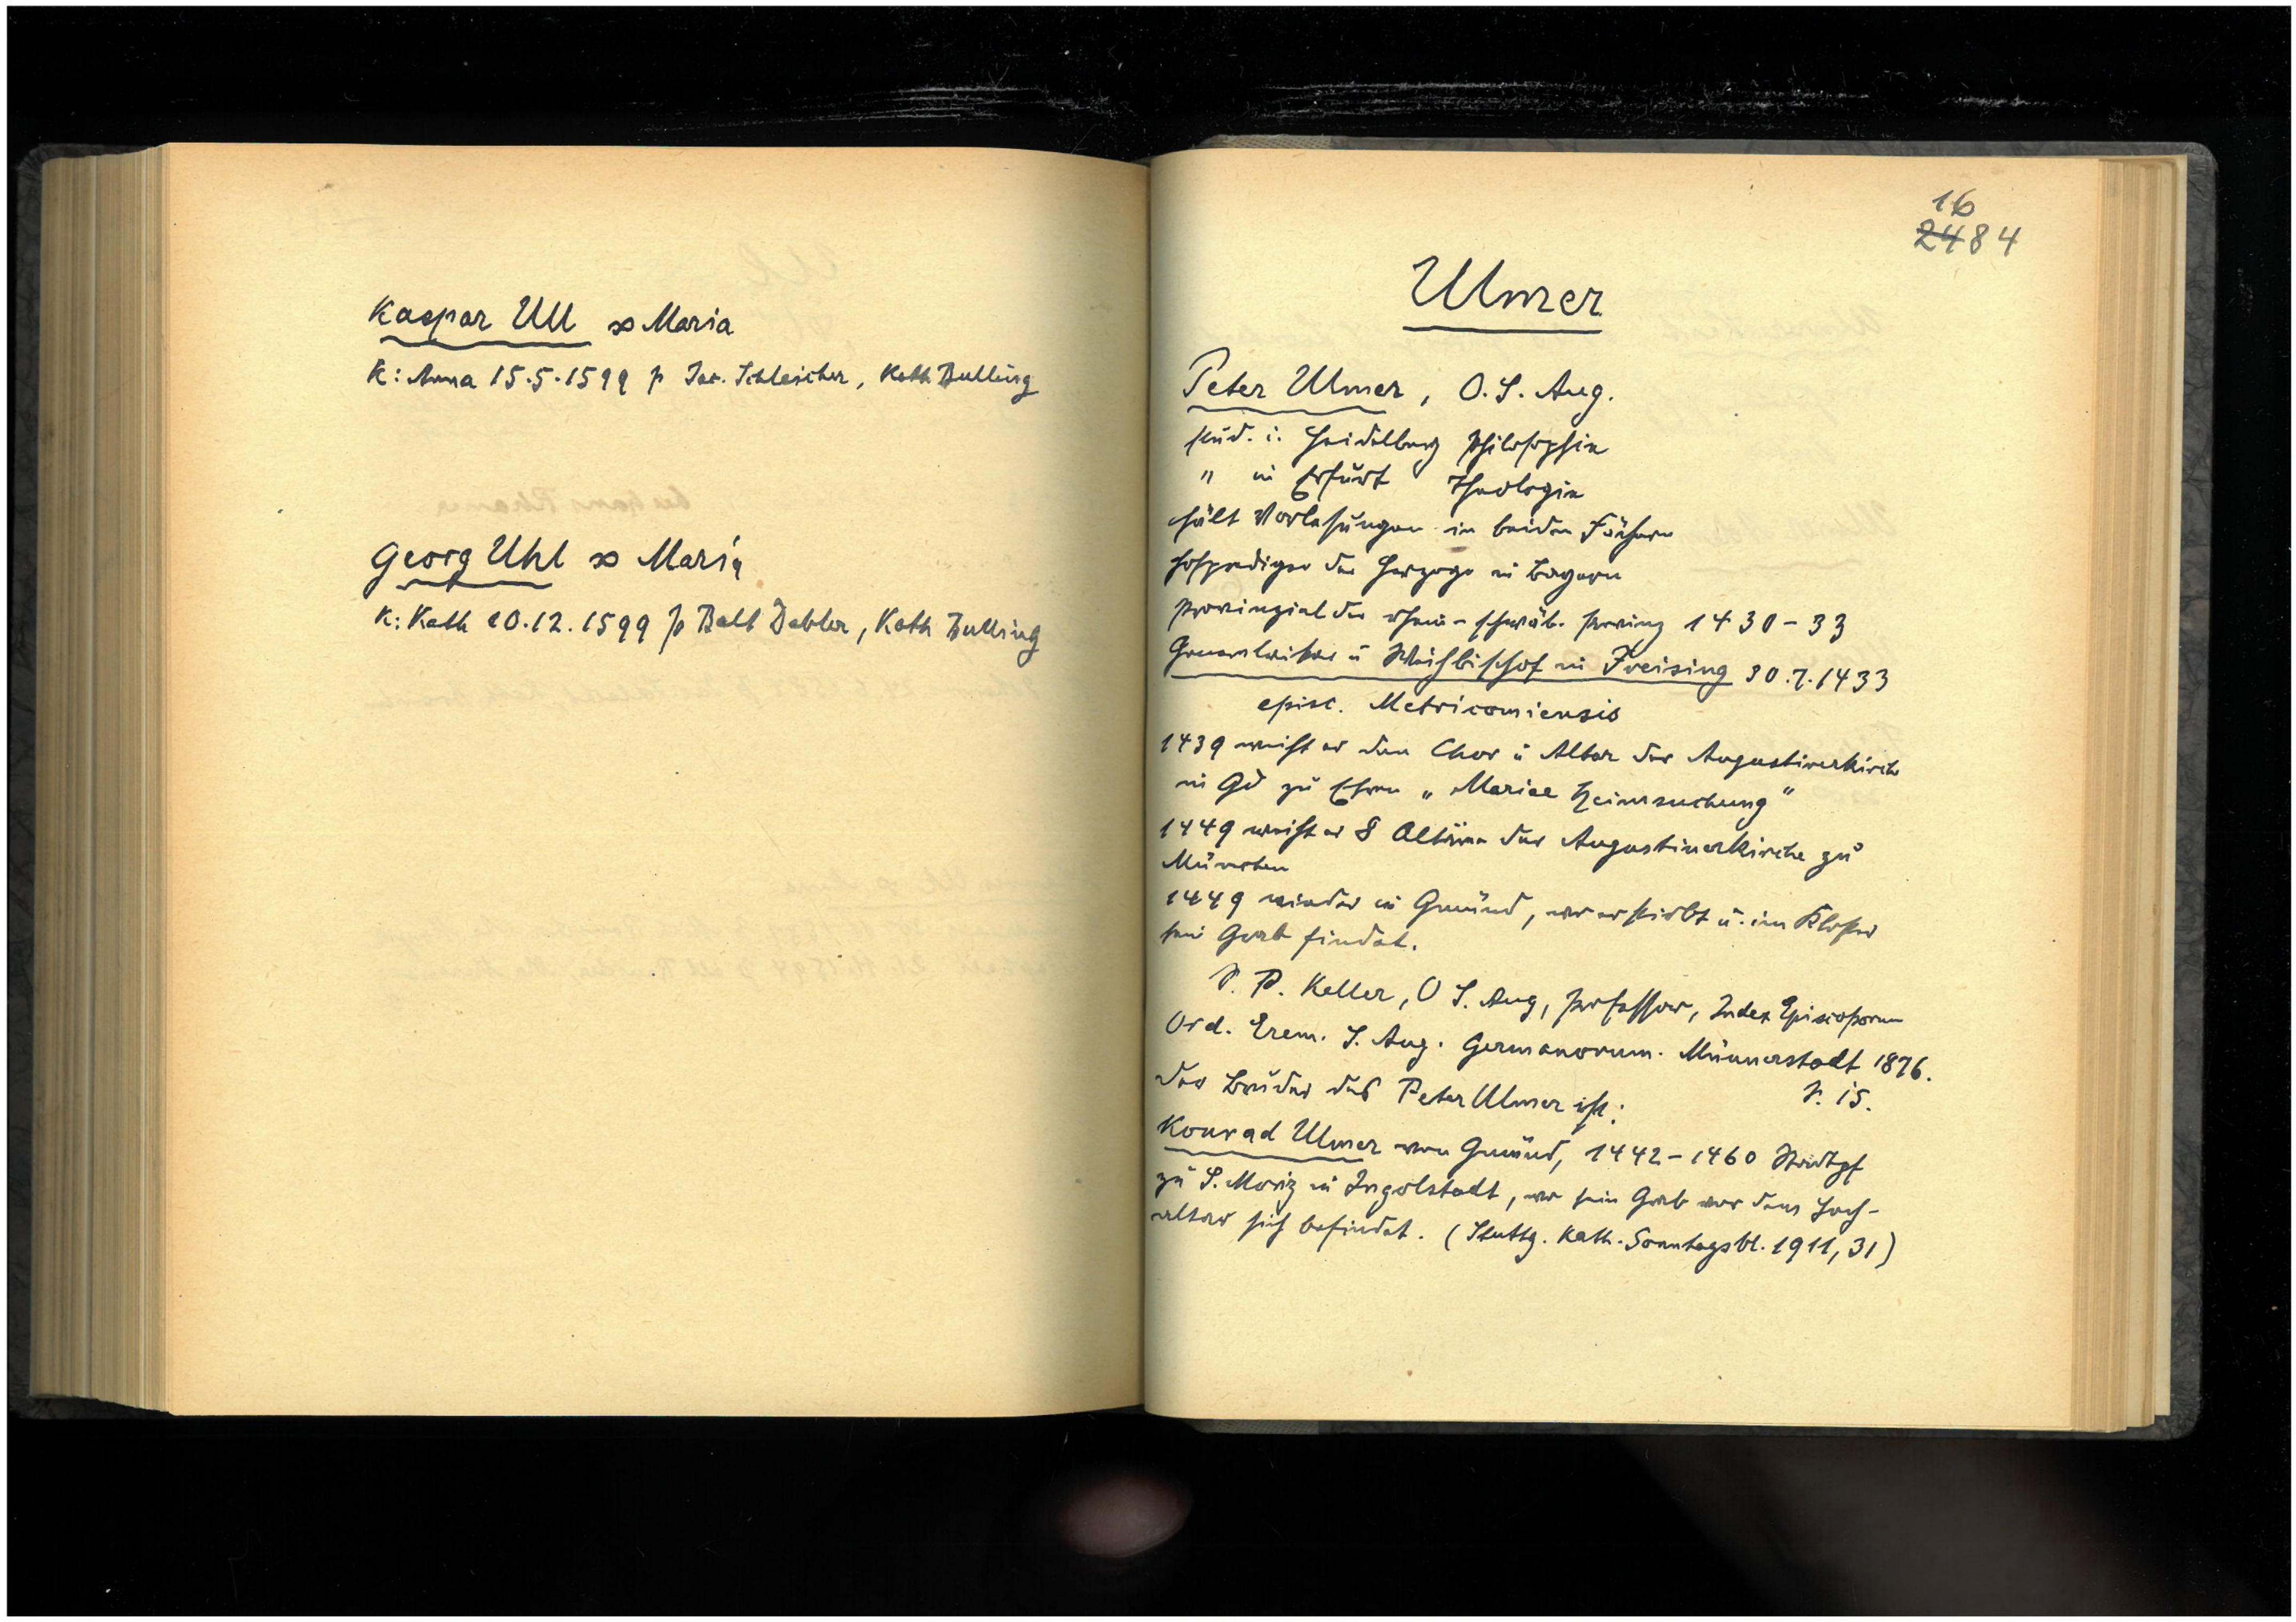 Kaspar Ull ∞ Maria
K: Anna 15.5.1599 p Jac. Schleicher, Kath Bulling
Georg Uhl ∞ Maria
K: Kath 20.12.1599 p Balt Debler, Kath Bulling
16
2484
Ulmer
Peter Ulmer, O.S. Aug.
stud. i. Heidelberg Philosophie
" in Erfurt Theologie
hält Vorlesungen in beiden Fächern
Hofprediger der Herzoge in Bayern
Provinzial der rhein-schwäb. Provinz 1430-33
Generalvikar u Weihbischof in Freising 30.7.1433
episc. Metricomiensis
1439 weiht er den Chor u Altar der Augustinerkirche
in Gd zu Ehren „Mariae Heimsuchung"
1449 weiht er 8 Altäre der Augustinerkirche zu
München
1449 wieder in Gmünd, wo er stirbt u. im Kloster
sein Grab findet.
S. P. Keller, O S. Aug, Professor, Index Episcoporum
Ord. Erem. S. Aug. Germanorum. Münnerstadt 1876.
S. 15.
Der Bruder des Peter Ulmer ist:
Konrad Ulmer von Gmünd, 1442-1460 Stadtpf
zu S. Moriz in Ingolstadt, wo sein Grab vor dem Hoch-
altar sich befindet. (Stuttg. Kath. Sonntagsbl. 1911, 31)